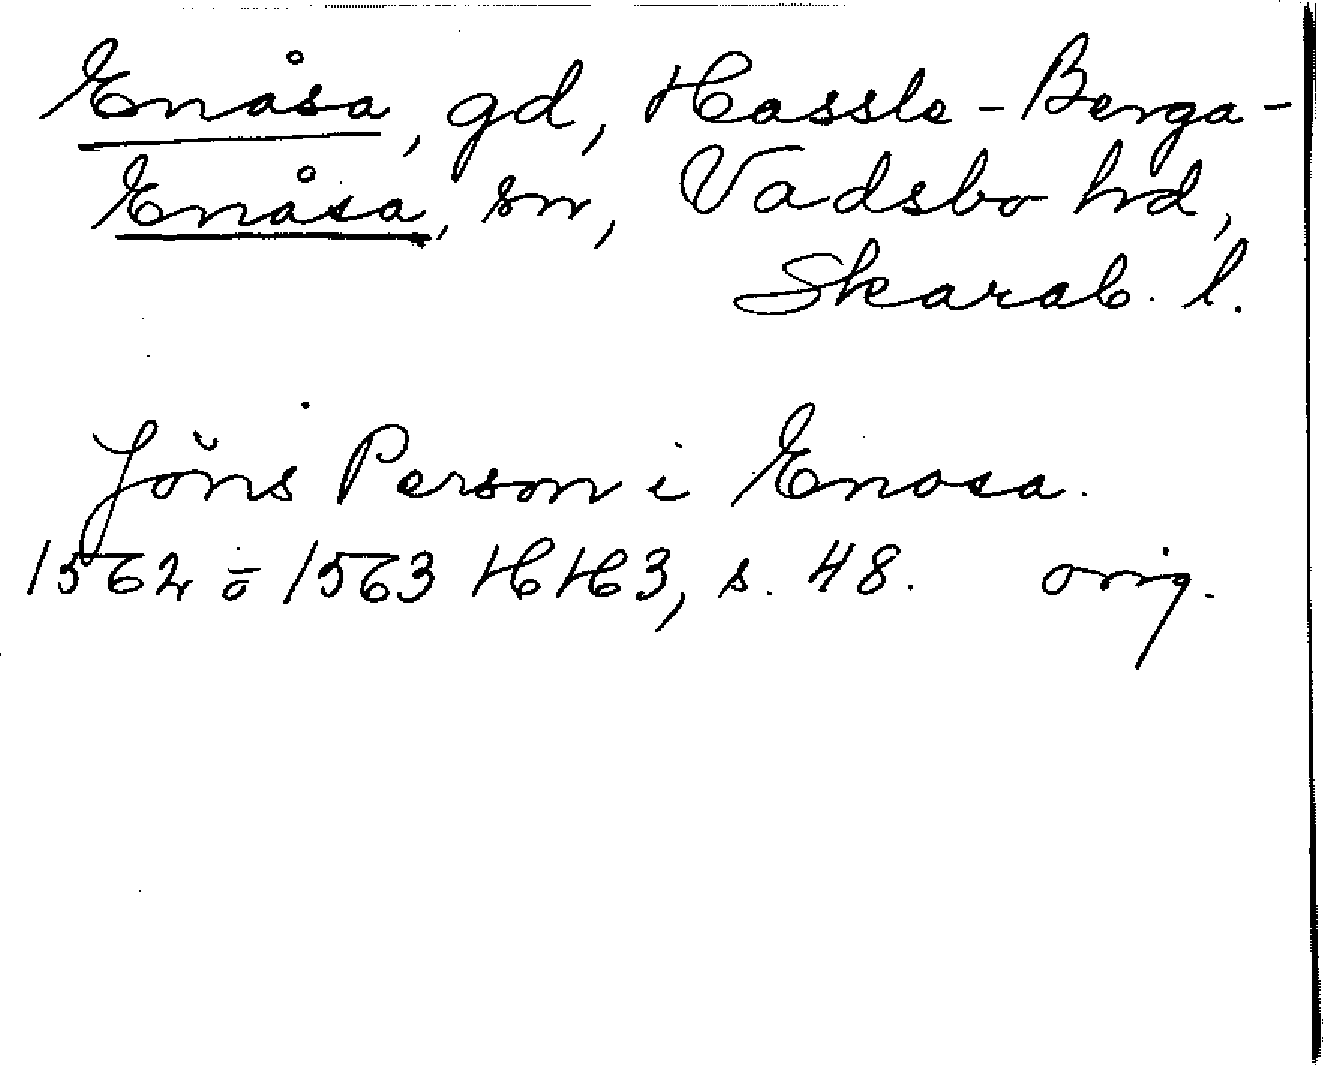 Enåsa, gd, Hassle-Berga-
Enåsa, sn, Vadsbo hd,
Skarab. l.
Jöns Person i Enosa.
1562 o 1563 HH3, s. 48. orig.